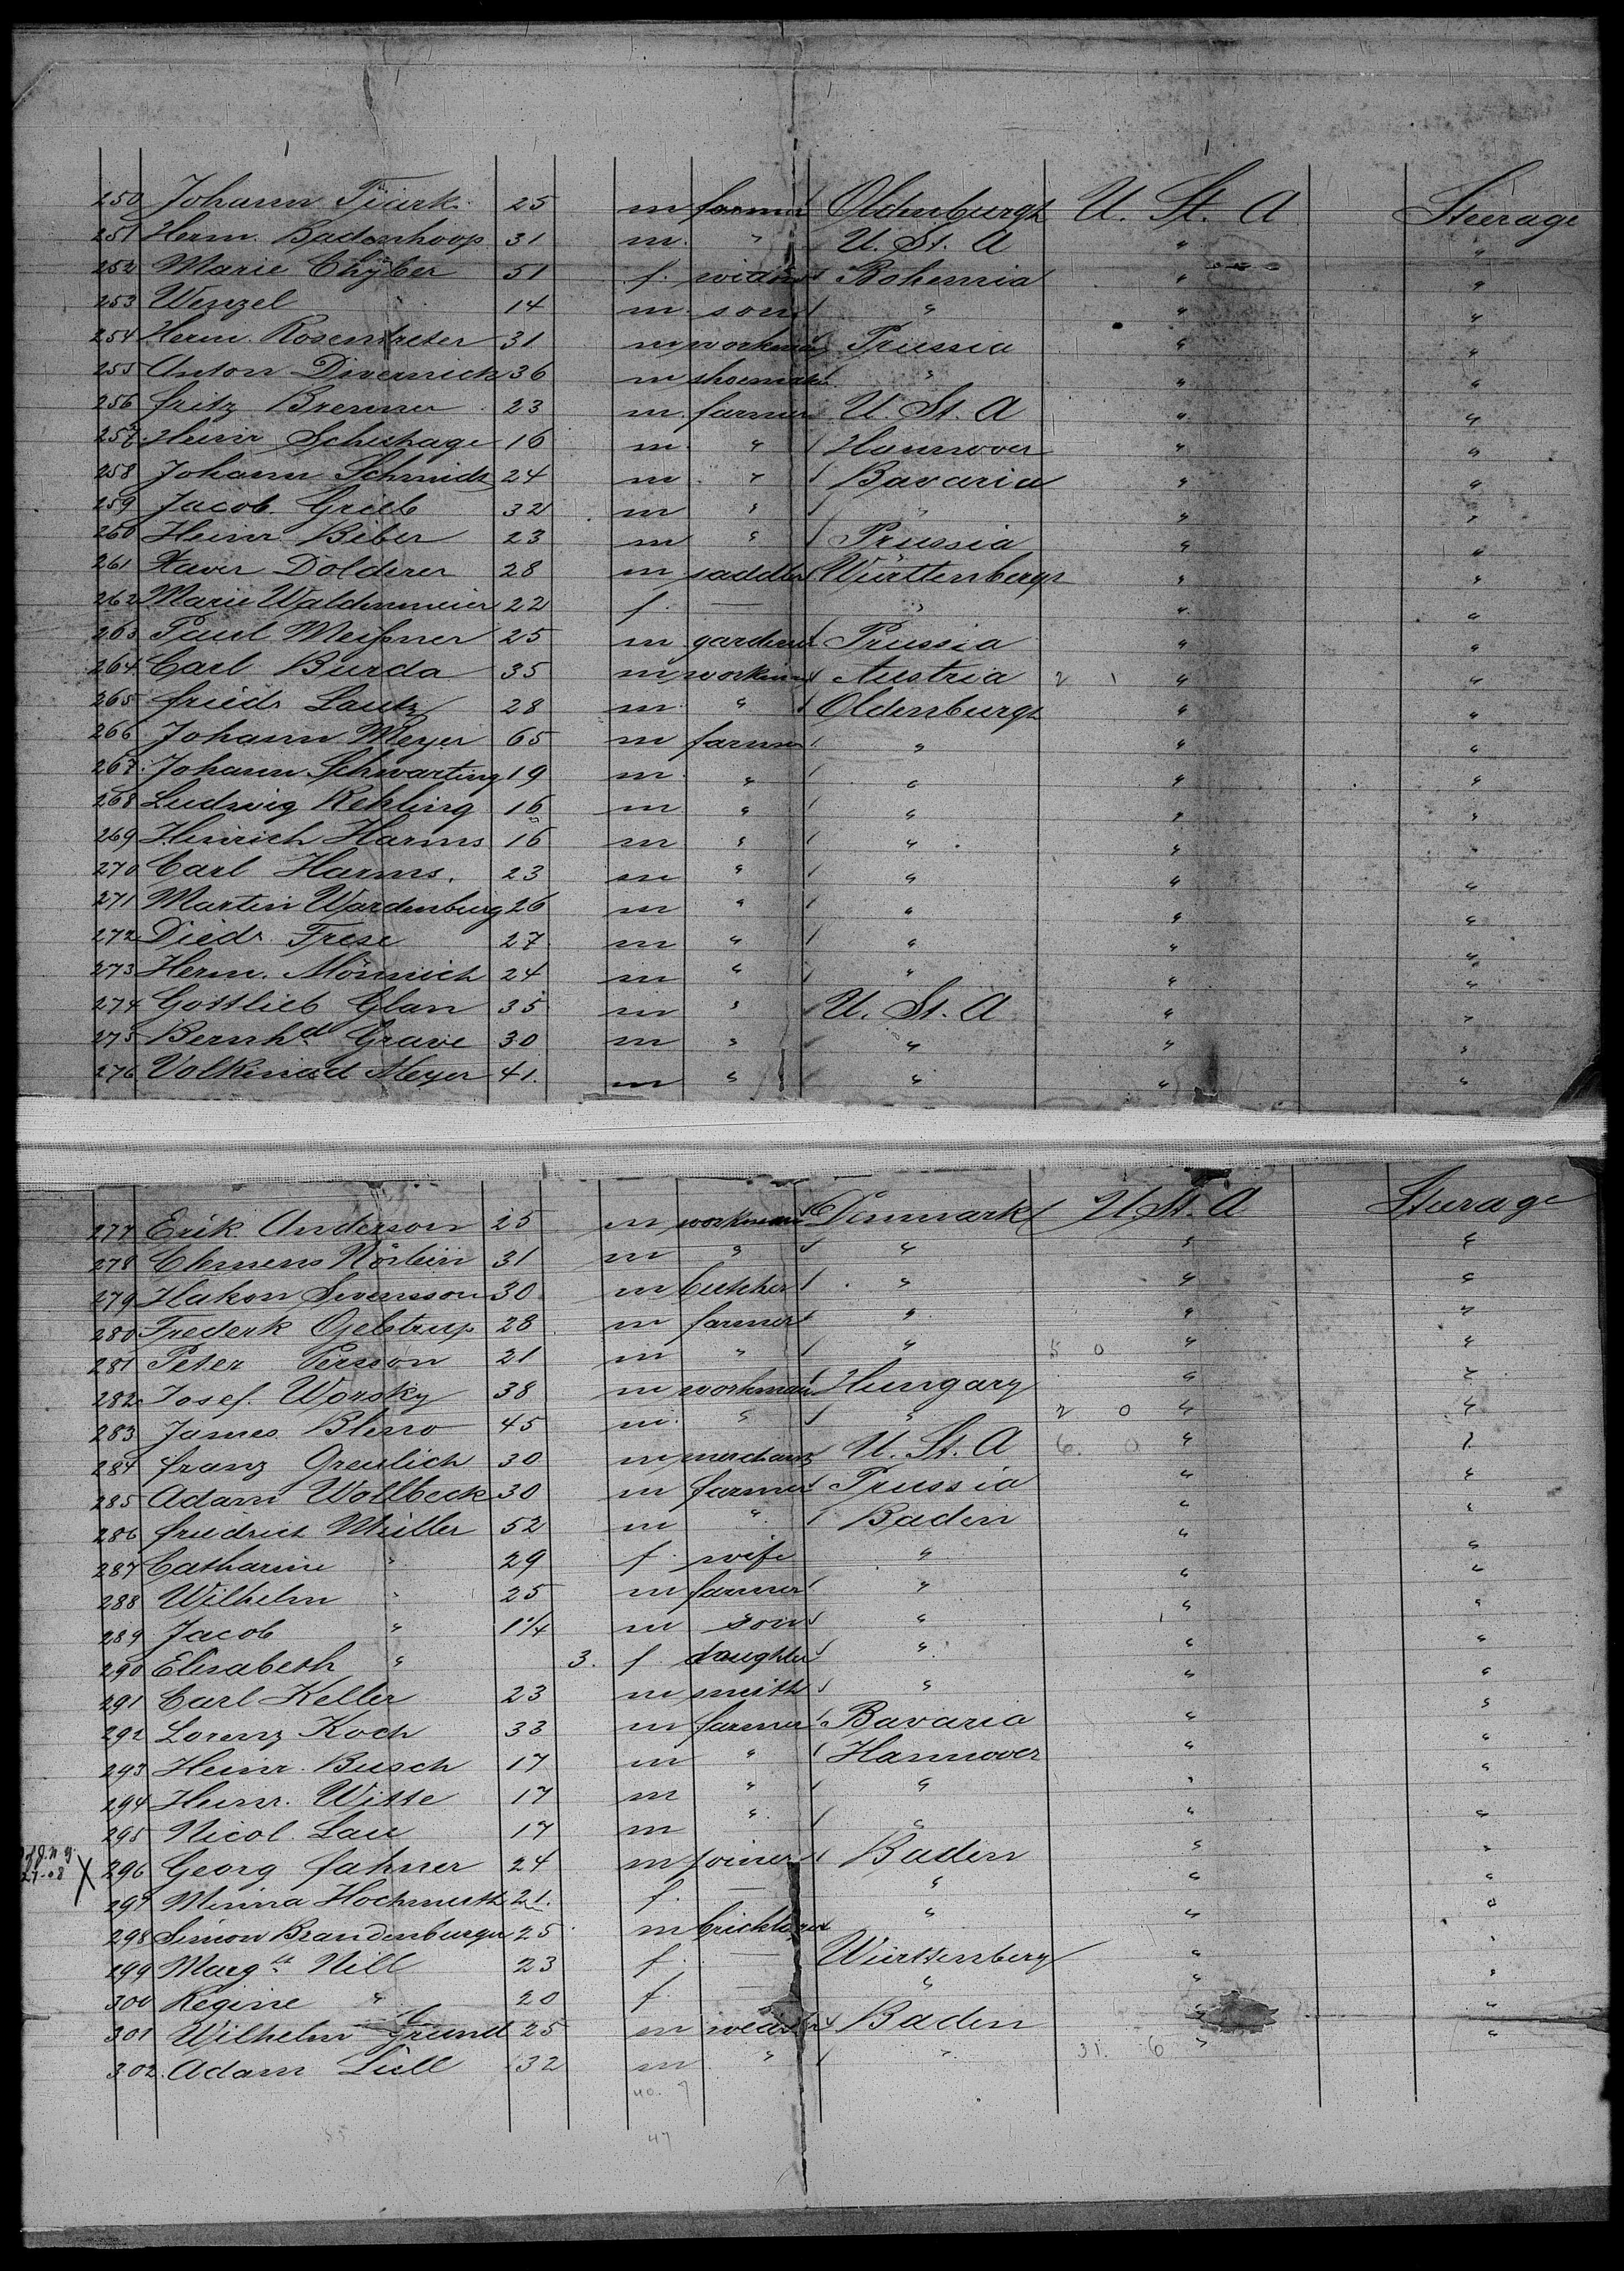 250 Johann Tjark 25 m farmer Oldenburgh U. St. A Steerage
251 Herm. Badenhoop 31 m. " U. St. A " "
252 Marie Chyber 51 f. widow Bohemia " "
253 Wenzel " 14 m son " " "
254 Herm. Rosentreter 31 m workman Prussia " "
255 Anton Divernick 36 m shoemaker " " "
256 Fritz Bremer 23 m. farmer U. St. A " "
257 Heinr Scheshage 16 m " Hannover " "
258 Johann Schmidt 24 m " Bavaria " "
259 Jacob Grieb 32 m " " " "
260 Heinr Biber 23 m " Prussia " "
261 Xaver Dolderer 28 m saddler Württenbergh " "
262 Marie Waldenmeier 22 f. — " " "
263 Paul Meißner 25 m gardener Prussia " "
264 Carl Burda 35 m workman Austria 2 1 " "
265 Friedr Lautz 28 m " Oldenburgh " "
266 Johann Meyer 65 m farmer " " "
267 Johann Schwarting 19 m " " " "
268 Ludwig Rehling 16 m " " " "
269 Hinrich Harms 16 m " " " "
270 Carl Harms. 23 m " " " "
271 Martin Wardenburg 26 m " " " "
272 Diedr. Frese 27 m " " " "
273 Herm. Mönnich 24 m " " " "
274 Gottlieb Glan 35 m " U. St. A " "
275 Bernhd Grave 30 m " " " "
276 Volkmad Meyer 41. m " " " "
277 Erik Anderson 25 m workman Denmark U. St. A Steerage
278 Clemens 31 m " " " "
279 Hakon Svensson 30 m butcher " " "
280 Frederk Ojelstrup 28 m farmer " " "
281 Peter Persson 21 m " " 5 0 " "
282 Josef. Worsky 38 m workman Hungary " "
283 James Blerro 45 m. " " 2 0 " "
284 Franz Greulich 30 m merchant U. St. A 6. 0 " "
285 Adam Wollbeck 30 m farmer Prussia " "
286 Friedrich Müller 52 m " Baden " "
287 Catharine " 29 f. wife " " "
288 Wilhelm " 25 m farmer " " "
289 Jacob " 1 1/4 m son " " "
290 Elisabeth " 3. f. daughter " " "
291 Carl Keller 23 m smith " " "
292 Lorenz Koch 33 m farmer Bavaria " "
293 Heinr. Busch 17 m " Hannover " "
294 Heinr. Witte 17 m " " " "
295 Nicol. Lau 17 m " " " "
X 296 Georg Fahner 24 m joiner Baden " "
297 Minna Hochmuth 21. f. — " " "
298 Simon Brandenburger 25 m bricklayer " " "
299 Margth Nill 23 f. — Württenberg " "
300 Regine " 20 f. — " " "
301 Wilhelm Grund 25 m weaver Baden " "
302. Adam Lüll 32 m " " 31. 6 " "
40. 7
55 47